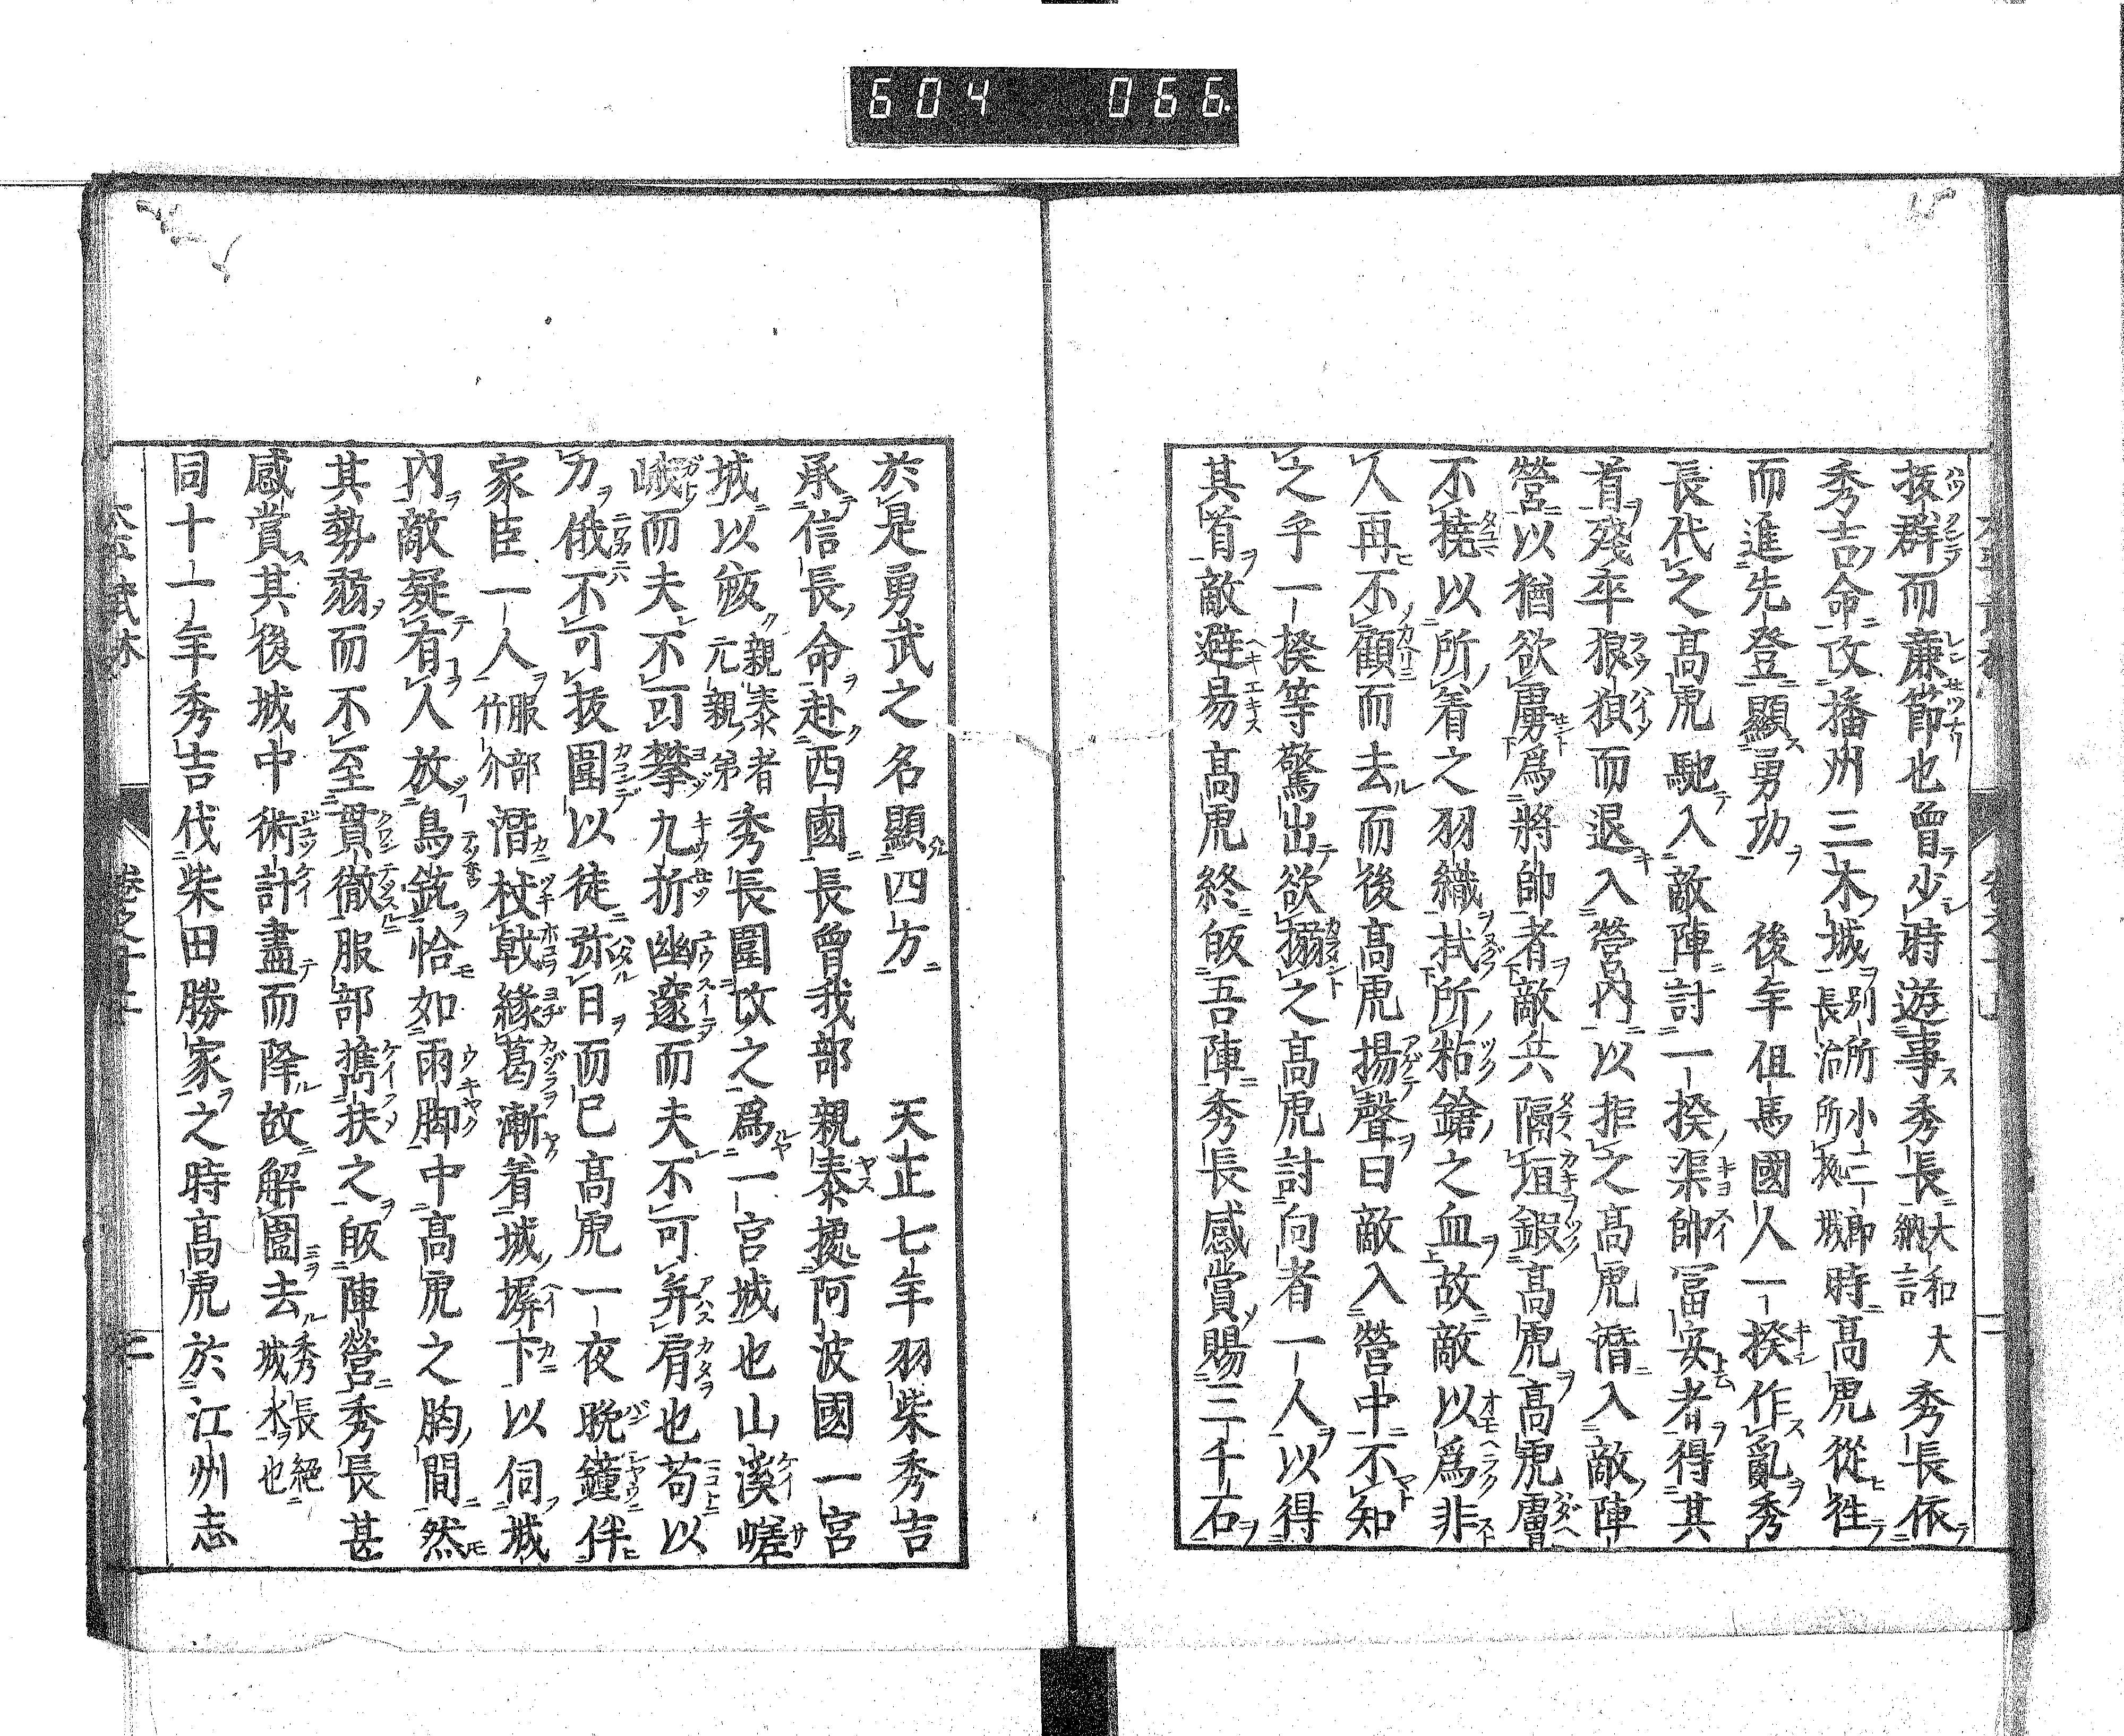 604 066
拔群而廉節也曾少時遊事秀長大和大納言秀長依
秀吉命攻播州三木城別所小三郎長治所拠城時高虎從往
而進先登顯勇功 後年但馬國人一揆作亂秀
長代之高虎馳入敵陣討一揆渠帥冨安者得其
首殘卒狼狽而退入營內以拒之高虎潛入敵陣
營以猶欲虜爲將帥者敵兵隔垣鍜高虎高虎膚
不撓以所着之羽織拭所粘鎗之血故敵以爲非
人再不顧而去而後高虎揚聲曰敵入營中不知
之乎一揆等驚出欲搦之高虎討向者一人以得
其首敵避易高虎終皈吾陣秀長感賞賜三千石
於是勇武之名顯四方 天正七年羽柴秀吉
承信長命赴西國長曾我部親泰據阿波國一宮
城以皈親泰者元親弟秀長圍攻之爲一宮城也山溪嵯
峨而夫不可攀九折幽邃而夫不可并肩也苟以
力俄不可拔圍以徒弥日而已高虎一夜晩鐘伴
家臣一人服部竹介潛杖戟緣葛漸着城塀下以伺城
內敵疑有人放鳥銃恰如雨脚中高虎之胸間然
其勢弱而不至貫徹服部携扶之皈陣營秀長甚
感賞其後城中術計盡而降故解圍去秀長絕城水也
同十一年秀吉伐柴田勝家之時高虎於江州志